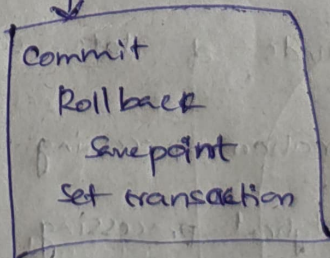 Commit
Rollback
Savepoint
Set transaction